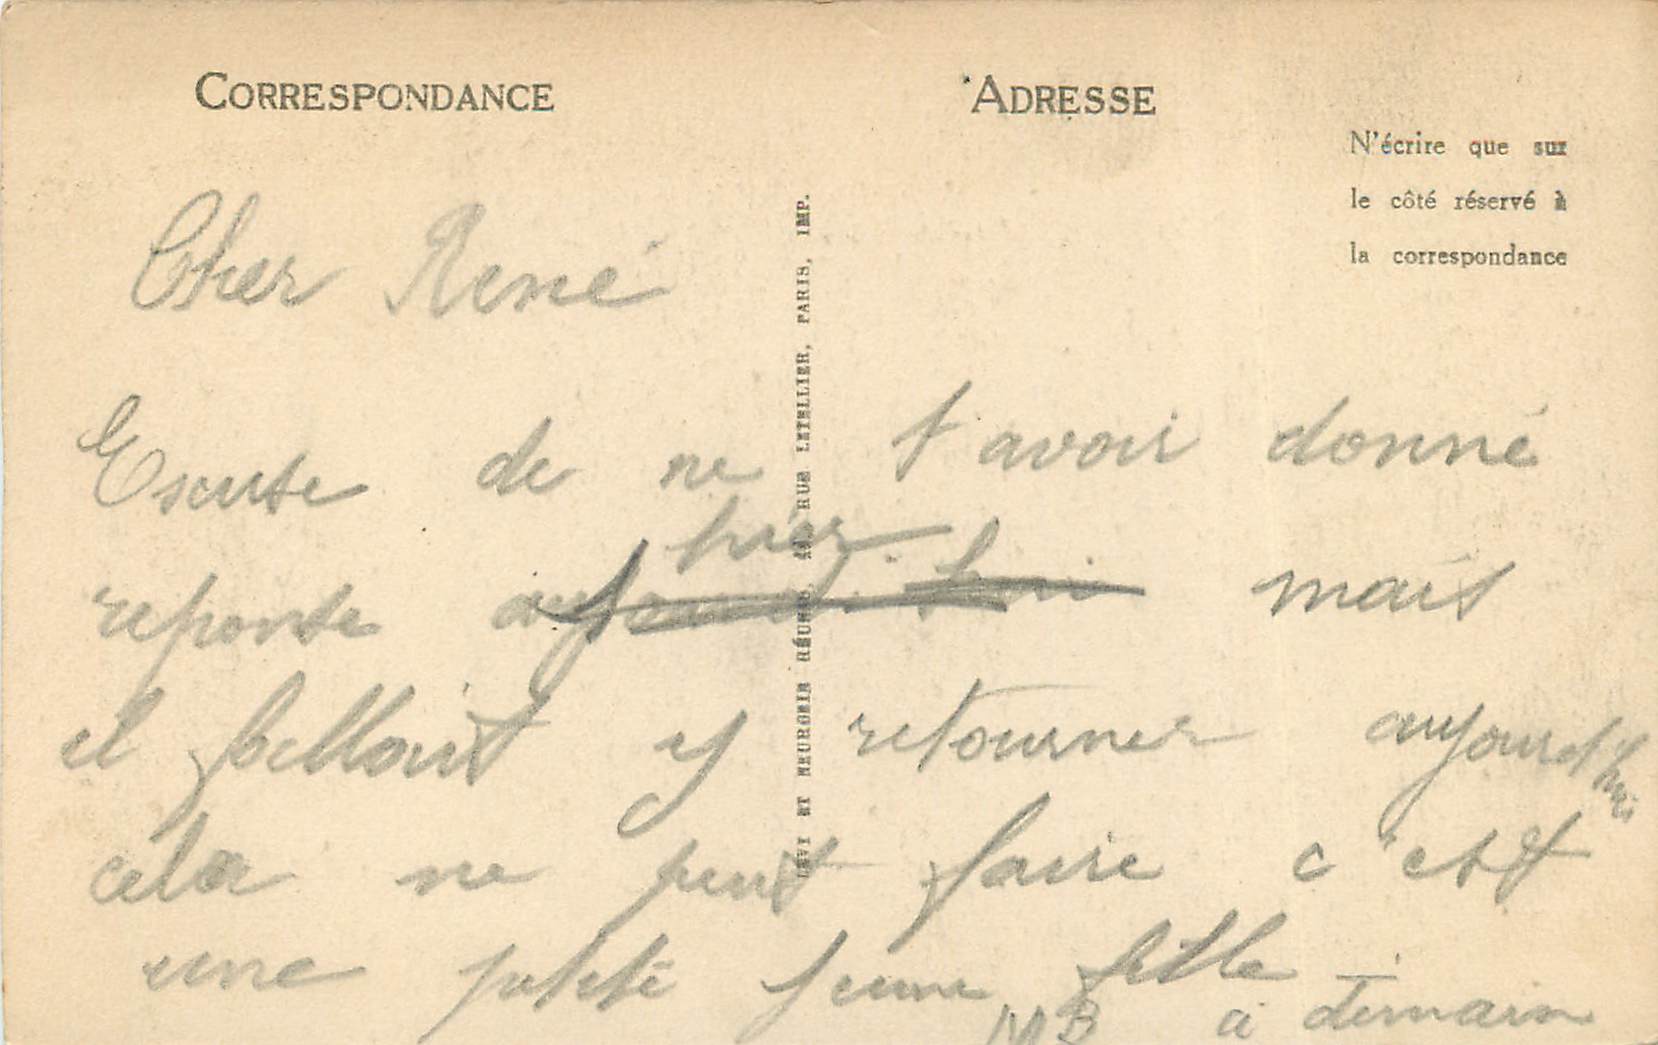 CORRESPONDANCE
ADRESSE
N'écrire que sur
le côté réservé à
la correspondance
LEVY ET NEURDEIN RÉUNIS, 44, RUE LETELLIER, PARIS, IMP.
Cher René
Escuse de ne t'avoir donné
hier
reponse aujourd'hui mais
il fallait y retourner aujourd'hui
cela ne peut faire c'est
une petite jeune fille
MB à demain